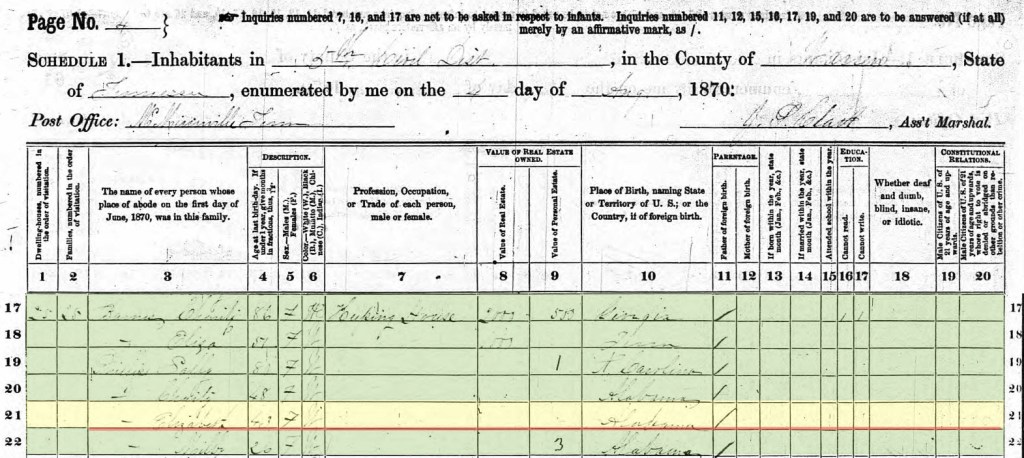 Page No. 4 } Inquiries numbered 7, 16, and 17 are not to be asked in respect to infants. Inquiries numbered 11, 12, 15, 16, 17, 19, and 20 are to be answered (if at all)
merely by an affirmative mark, as /.
SCHEDULE 1.—Inhabitants in Civil Dist, in the County of Warren, State
of Tennessee, enumerated by me on the day of Aug, 1870:
Post Office: McMinnville Tenn J. P. Clark, Ass't Marshal.
Dwelling-houses, numbered in the order of visitation.
Families, numbered in the order of visitation.
The name of every person whose place of abode on the first day of June, 1870, was in this family.
DESCRIPTION.
Age at last birth-day. If under 1 year, give months in fractions, thus,
Sex.—Males (M.), Females (F.)
Color.—White (W.), Black (B.), Mulatto (M.), Chinese (C.), Indian (I.)
Profession, Occupation, or Trade of each person, male or female.
VALUE OF REAL ESTATE OWNED.
Value of Real Estate.
Value of Personal Estate.
Place of Birth, naming State or Territory of U. S.; or the Country, if of foreign birth.
PARENTAGE.
Father of foreign birth.
Mother of foreign birth.
If born within the year, state month (Jan., Feb., &c.)
If married within the year, state month (Jan., Feb., &c.)
Attended school within the year.
EDUCATION.
Cannot read.
Cannot write.
Whether deaf and dumb, blind, insane, or idiotic.
CONSTITUTIONAL RELATIONS.
Male Citizens of U. S. of 21 years of age and upwards.
Male Citizens of U. S. of 21 years of age and upwards, whose right to vote is denied or abridged on other grounds than rebellion or other crime.
1 2 3 4 5 6 7 8 9 10 11 12 13 14 15 16 17 18 19 20
17 86 F W Keeping House 500 Georgia / 1 1 17
18 Eliza F Tenn / 18
19 Sally F 1 N. Carolina / 19
20 48 F Alabama / 20
21 Elizabeth F Alabama / 21
22 26 F 3 Alabama / 22